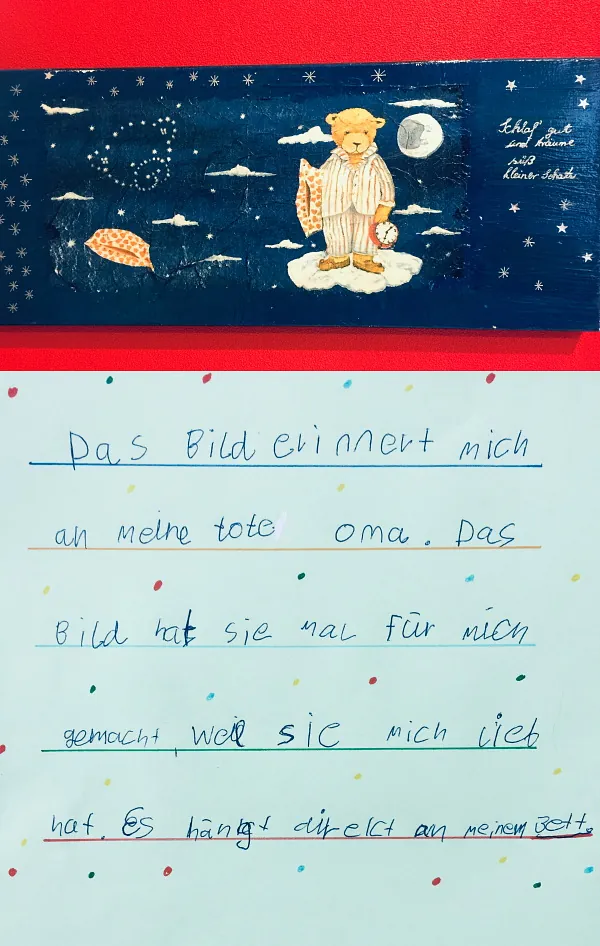 Schlaf' gut
und träume
süß
kleiner Schatz
Das Bild erinnert mich
an meine tote oma. Das
Bild hat sie mal für mich
gemacht, weil sie mich lieb
hat. Es hängt direkt an meinem Bett.